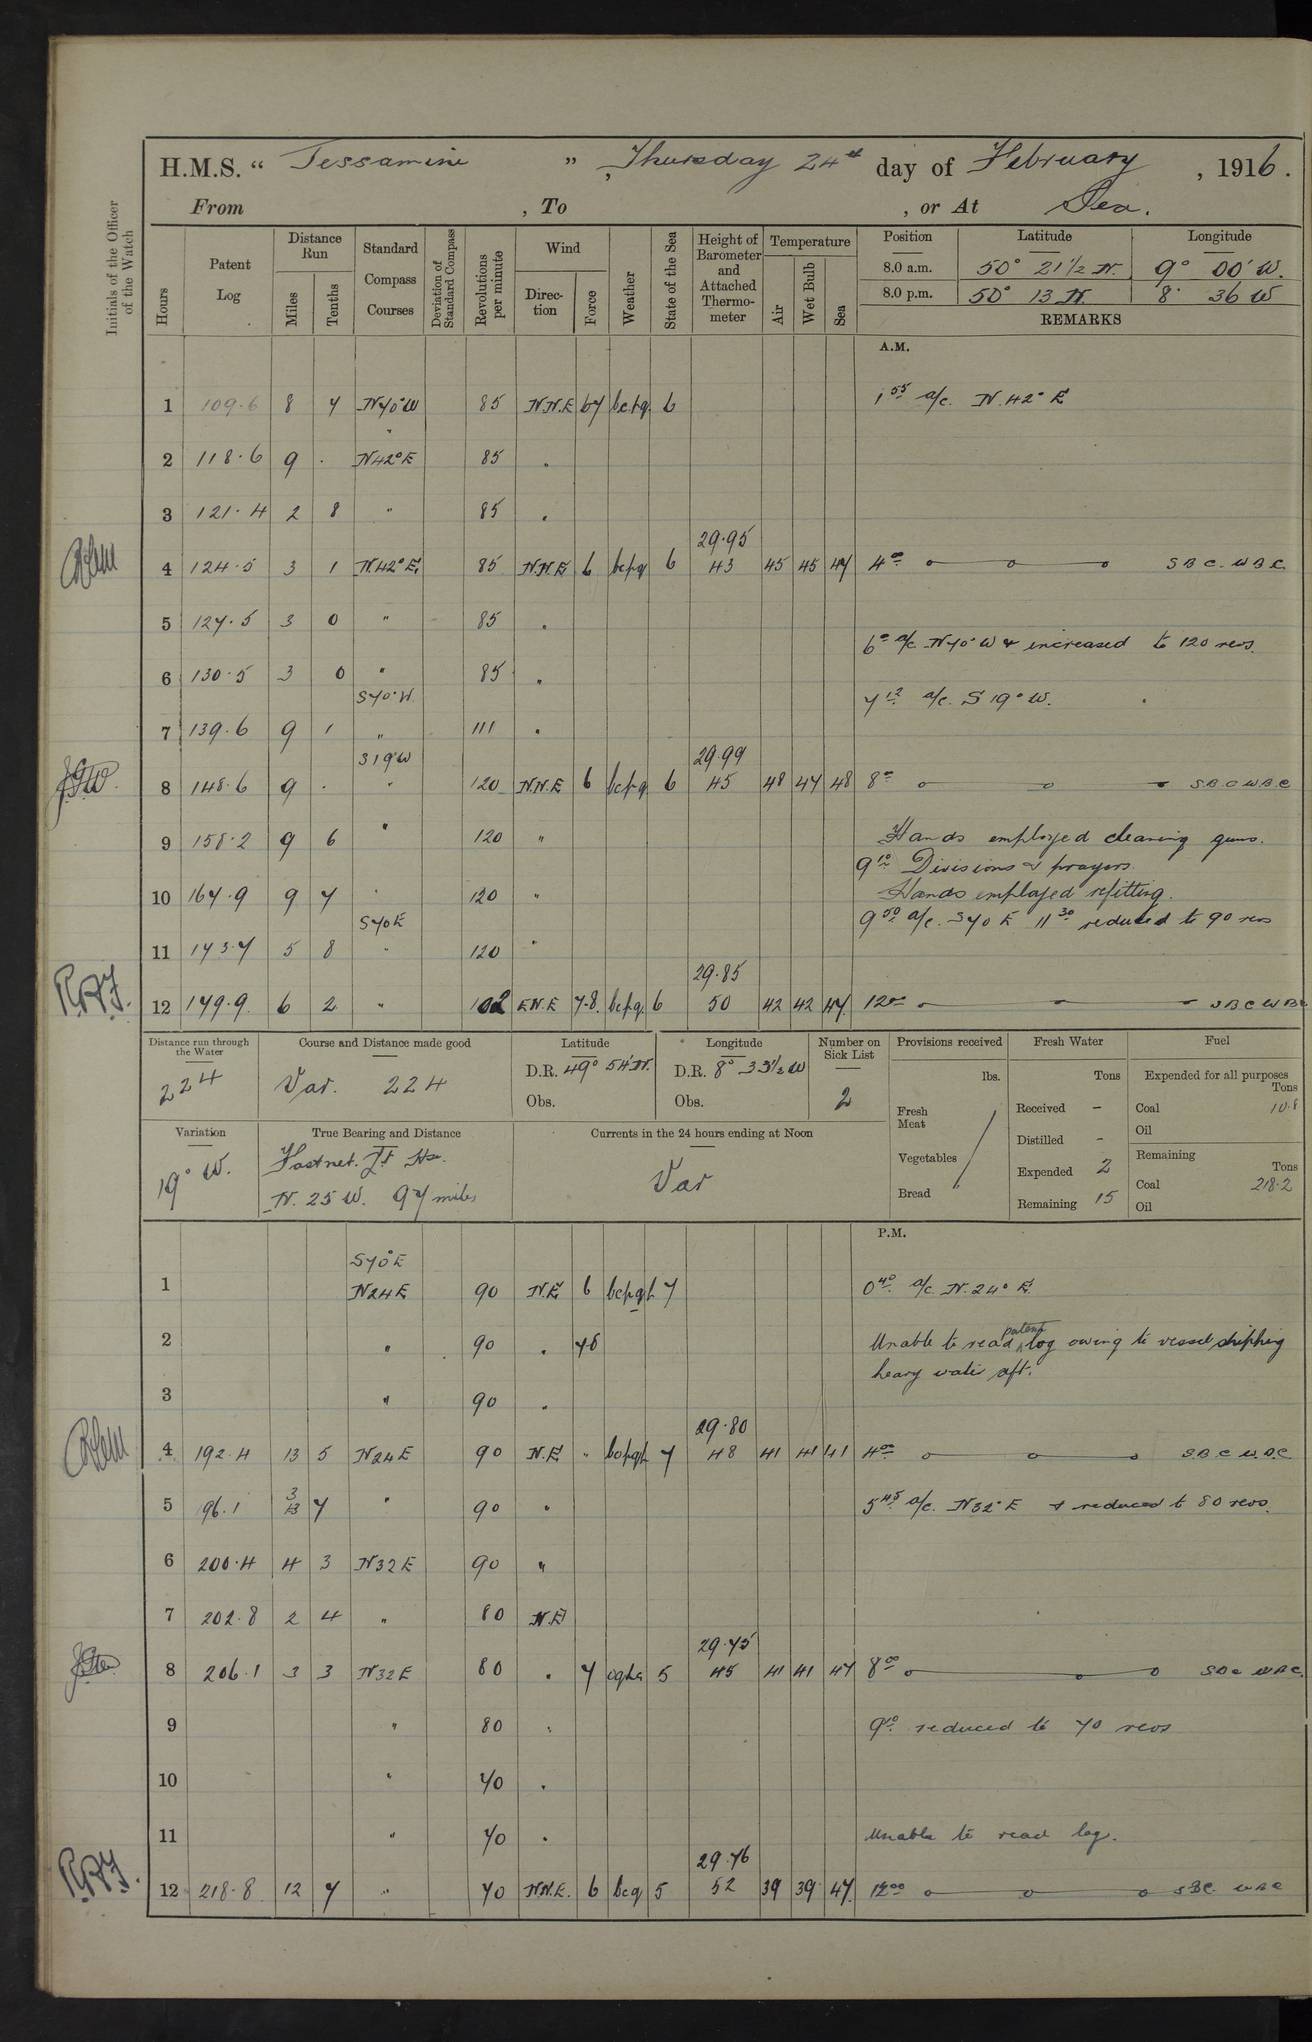 H.M.S. “ Jessamine ” , Thursday 24th day of February , 1916.
From , To , or At Sea.
Initials of the Officer of the Watch
Hours
Patent Log
Distance Run
Miles
Tenths
Standard Compass Courses
Deviation of Standard Compass
Revolutions per minute
Wind
Direction
Force
Weather
State of the Sea
Height of Barometer and Attached Thermometer
Temperature
Air
Wet Bulb
Sea
Position Latitude Longitude
8.0 a.m. 50° 21½ N. 9° 00' W.
8.0 p.m. 50° 13 N. 8° 36 W
REMARKS
A.M.
1 109.6 8 7 N70°W 85 N.N.E 67 bcpq. 6 1 55 a/c. N.42° E
2 118.6 9 . N42°E 85 "
3 121.4 2 8 " 85 "
29.95
4 124.5 3 1 N.42°E. 85 N.N.E 6 bcpq 6 43 45 45 47 4 00 S B C. W B C.
5 127.5 3 0 " 85 "
6 00 a/c. N70°W & increased to 120 revs.
6 130.5 3 0 " 85 "
S70°W.
7 12 a/c. S 19° W.
7 139.6 9 1 " 111 "
S19°W 29.99
8 148.6 9 . " 120 N.N.E 6 bcpq 6 45 48 47 48 8 00 S.B.C W.B.C
9 158.2 9 6 " 120 " Hands employed cleaning guns.
9 10 Divisions & prayers.
10 167.9 9 7 " 120 " Hands employed refitting.
S70E 9 50 a/c. S70 E 11 30 reduced to 90 revs
11 173.7 5 8 " 120 "
29.85
12 179.9 6 2 " 102 E N.E 7-8. bcpq. 6 50 42 42 47. 12 00 S B C W B C
R.A.J.
Distance run through the Water
224
Course and Distance made good
Var. 224
Latitude
D.R. 49° 54' N.
Obs.
Longitude
D.R. 8° 33½ W
Obs.
Number on Sick List
2
Provisions received
lbs.
Fresh Meat
Vegetables
Bread
Fresh Water
Tons
Received -
Distilled -
Expended 2
Remaining 15
Fuel
Expended for all purposes
Tons
Coal 10.8
Oil
Remaining
Tons
Coal 218.2
Oil
Variation
19° W.
True Bearing and Distance
Fastnet. Lt Hse.
N. 25 W. 97 miles
Currents in the 24 hours ending at Noon
Var
P.M.
S70°E
1 N24E 90 N.E 6 7 0 40 a/c. N. 24° E.
2 " 90 " 78 Unable to read patent log owing to vessel shipping
heavy water aft.
3 " 90 "
29.80
4 192.4 13 5 N24E 90 N.E " 7 48 41 41 41 4 00 S.B.C W.B.C
5 96.1 3 7 " 90 " 5 45 a/c. N32°E & reduced to 80 revs.
6 200.4 4 3 N32E 90 "
7 202.8 2 4 " 80 N.E
29.75
8 206.1 3 3 N32E 80 " 7 5 45 41 41 47 8 00 SBC WBC.
9 " 80 " 9 10 reduced to 70 revs
10 " 70 "
11 " 70 " Unable to read log.
29.76
12 218.8 12 7 " 70 N.N.E. 6 bcq 5 52 39 39 47. 12 00 SBC WBC
R.A.J.